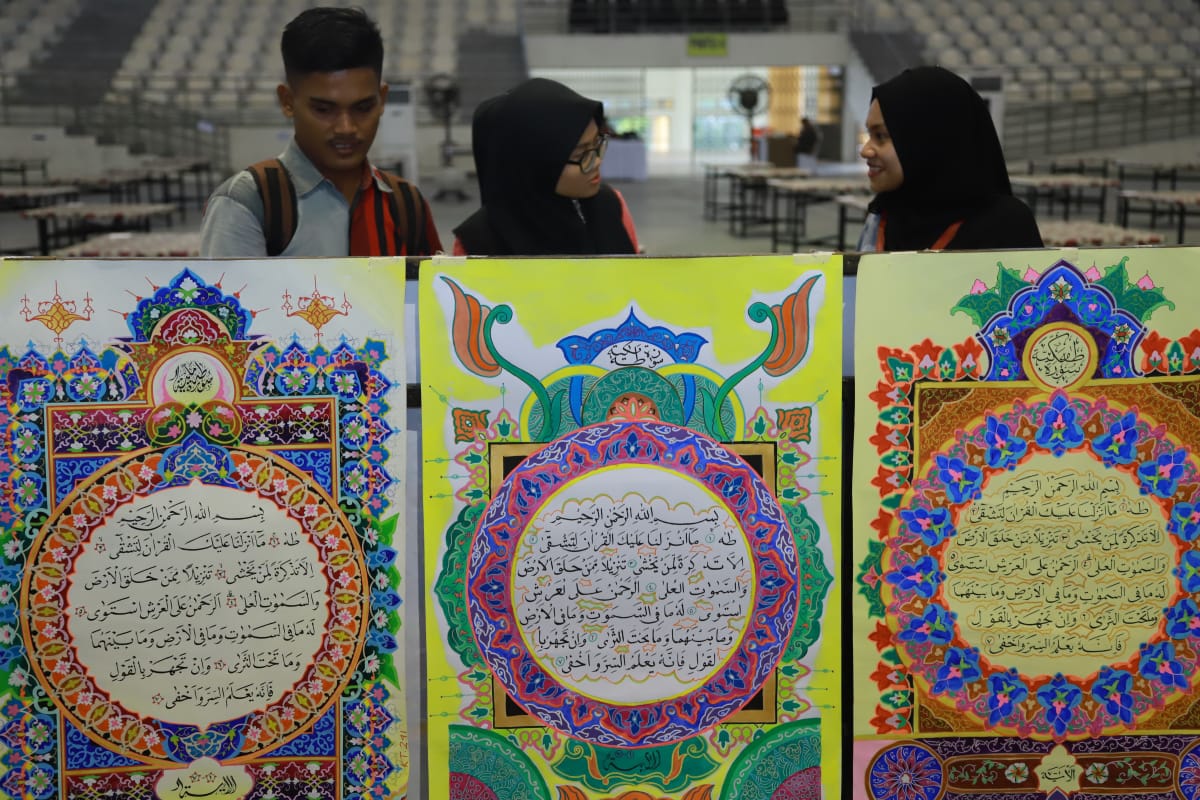 بِسْمِ اللهِ الرَّحْمٰنِ الرَّحِيْمِ
طٰهٰ مَا اَنْزَلْنَا عَلَيْكَ الْقُرْاٰنَ لِتَشْقٰى
اِلَّا تَذْكِرَةً لِمَنْ يَخْشٰى تَنْزِيْلًا مِمَّنْ خَلَقَ الْاَرْضَ
وَالسَّمٰوٰتِ الْعُلٰى اَلرَّحْمٰنُ عَلَى الْعَرْشِ اسْتَوٰى
لَهُ مَا فِى السَّمٰوٰتِ وَمَا فِى الْاَرْضِ وَمَا بَيْنَهُمَا
وَمَا تَحْتَ الثَّرٰى وَاِنْ تَجْهَرْ بِالْقَوْلِ
فَاِنَّهُ يَعْلَمُ السِّرَّ وَاَخْفٰى
KT.241
سورة طه مكية
بِسْمِ اللهِ الرَّحْمٰنِ الرَّحِيْمِ
طٰهٰ ١ مَا اَنْزَلْنَا عَلَيْكَ الْقُرْاٰنَ لِتَشْقٰى
اِلَّا تَذْكِرَةً لِمَنْ يَخْشٰى تَنْزِيْلًا مِمَّنْ خَلَقَ الْاَرْضَ
وَالسَّمٰوٰتِ الْعُلٰى اَلرَّحْمٰنُ عَلَى لْعَرْشِ
اسْتَوٰى لَهُ مَا فِى السَّمٰوٰتِ وَمَا فِى الْاَرْضِ
وَمَا بَيْنَهُمَا وَمَا تَحْتَ الثَّرٰى وَاِنْ تَجْهَرْ بِا
لْقَوْلِ فَاِنَّهُ يَعْلَمُ السِّرَّ وَاَخْفٰى
الاية
سورة طه مكية
بِسْمِ اللهِ الرَّحْمٰنِ الرَّحِيْمِ
طٰهٰ مَا اَنْزَلْنَا عَلَيْكَ الْقُرْاٰنَ لِتَشْقٰى
اِلَّا تَذْكِرَةً لِمَنْ يَخْشٰى تَنْزِيْلًا مِمَّنْ خَلَقَ الْاَرْضَ
وَالسَّمٰوٰتِ الْعُلٰى اَلرَّحْمٰنُ عَلَى الْعَرْشِ اسْتَوٰى
لَهُ مَا فِى السَّمٰوٰتِ وَمَا فِى الْاَرْضِ وَمَا بَيْنَهُمَا
وَمَا تَحْتَ الثَّرٰى وَاِنْ تَجْهَرْ بِالْقَوْلِ
فَاِنَّهُ يَعْلَمُ السِّرَّ وَاَخْفٰى
الاية